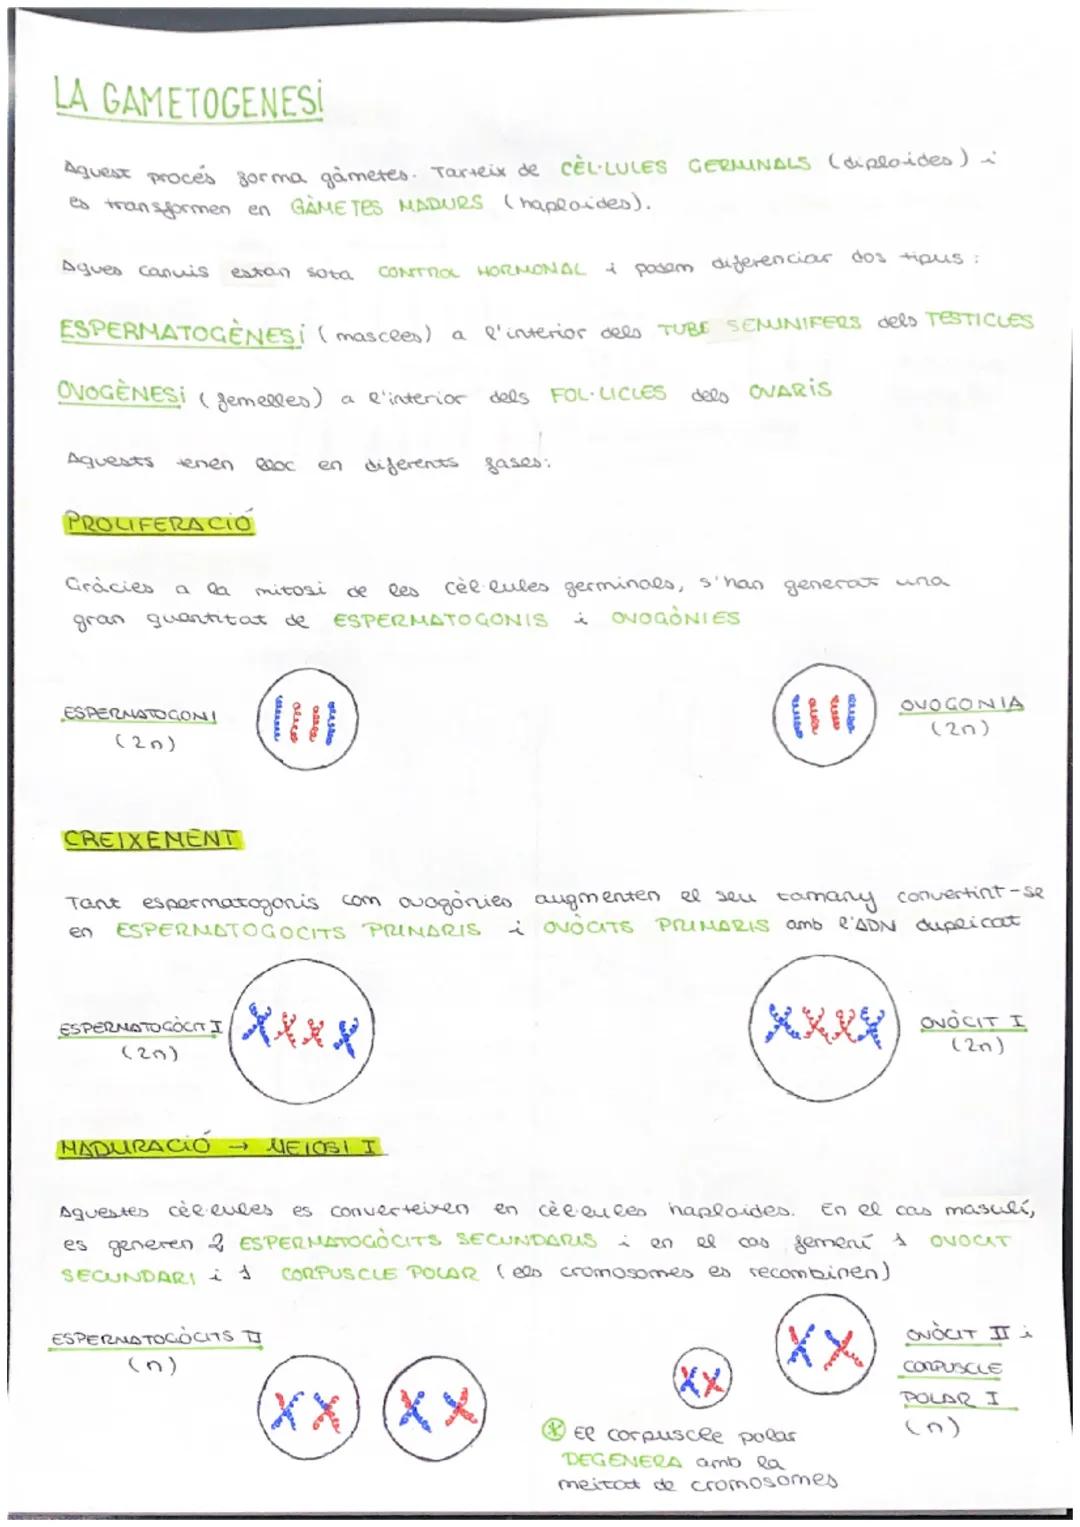 LA GAMETOGENESI
Aquest procés forma gàmetes. Parteix de CÈL·LULES GERMINALS (diploides) i
es transformen en GÀMETES MADURS (haploides).
Aques canvis estan sota CONTROL HORMONAL i podem diferenciar dos tipus:
ESPERMATOGÈNESI (mascles) a l'interior dels TUBS SEMINIFERS dels TESTICLES
OVOGÈNESI (femelles) a l'interior dels FOL·LICLES dels OVARIS
Aquests tenen lloc en diferents fases:
PROLIFERACIÓ
Gràcies a la mitosi de les cèl·lules germinals, s'han generat una
gran quantitat de ESPERMATOGONIS i OVOGÒNIES
ESPERMATOGONI
(2n)
OVOGONIA
(2n)
CREIXEMENT
Tant espermatogonis com ovogònies augmenten el seu tamany convertint-se
en ESPERMATOGOCITS PRIMARIS i OVÒCITS PRIMARIS amb l'ADN duplicat
ESPERMATOGÒCIT I
(2n)
OVÒCIT I
(2n)
MADURACIÓ → MEIOSI I
Aquestes cèl·lules es converteixen en cèl·lules haploides. En el cas masculí,
es generen 2 ESPERMATOGÒCITS SECUNDARIS i en el cas femení 1 OVOCIT
SECUNDARI i 1 CORPUSCLE POLAR (els cromosomes es recombinen)
ESPERMATOGÒCITS II
(n)
OVÒCIT II i
CORPUSCLE
POLAR I
(n)
* El corpuscle polar
DEGENERA amb la
meitat de cromosomes